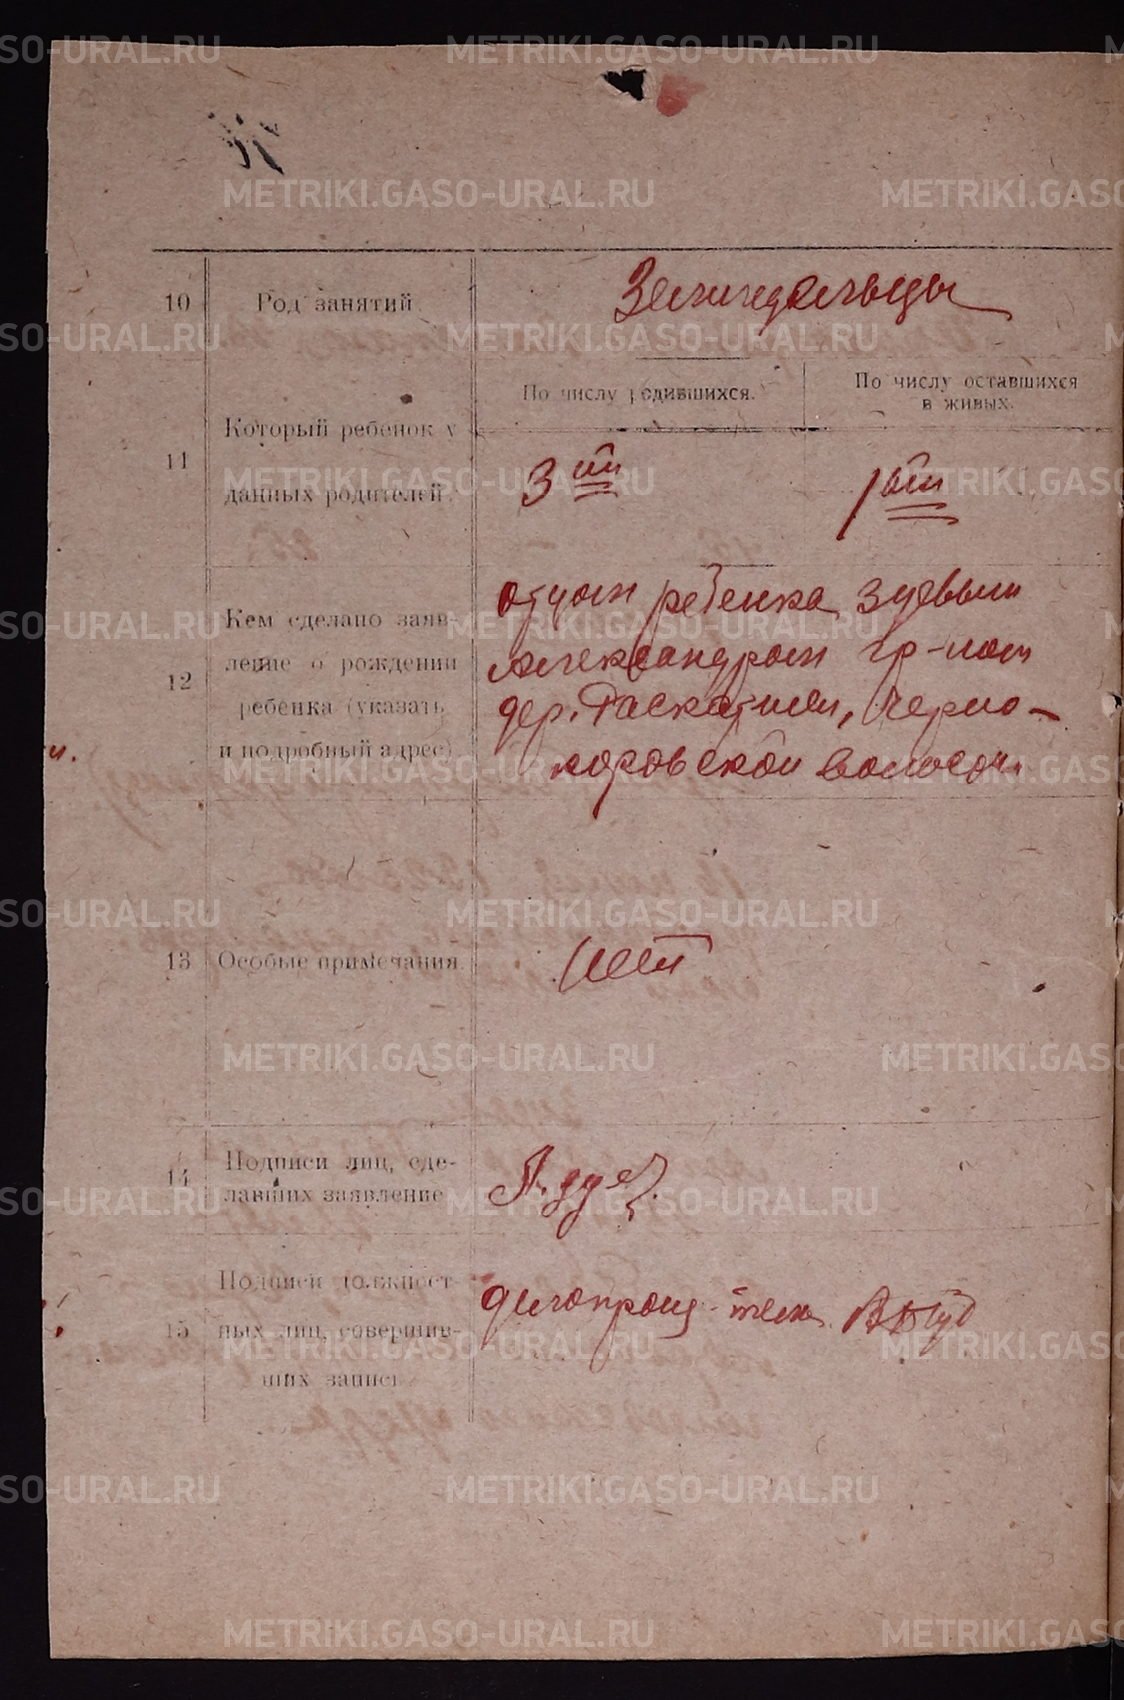 10 Род занятий
Земледельцы
11 Который ребенок у данных родителей.
По числу родившихся.
По числу оставшихся
в живых.
3ий
1ый
12 Кем сделано заяв-
ление о рождении
ребенка (указать
и подробный адрес)
отцом ребенка Зуевым
Александром гр-ном
дер. Таскатиси, Черно-
коровской волости
13 Особые примечания.
Нет
14 Подписи лиц, сде-
лавших заявление
А. Зуев.
15 Подписи должност-
ных лиц, совершив-
ших запись
делопроиз-тель
METRIKI.GASO-URAL.RU